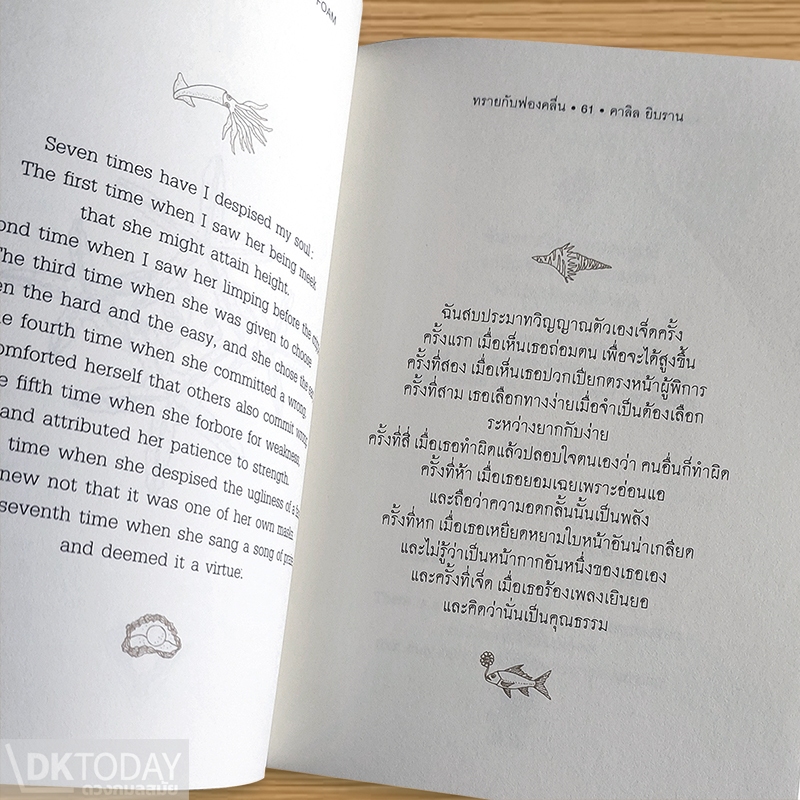 FOAM
Seven times have I despised my soul:
The first time when I saw her being meek
that she might attain height.
time when I saw her limping before the
The third time when she was given to choose
the hard and the easy, and she chose the
fourth time when she committed a wrong,
comforted herself that others also commit wrong.
fifth time when she forbore for weakness,
and attributed her patience to strength.
time when she despised the ugliness of a
not that it was one of her own masks.
seventh time when she sang a song of
and deemed it a virtue.
ทรายกับฟองคลื่น • 61 • คาลิล ยิบราน
ฉันสบประมาทวิญญาณตัวเองเจ็ดครั้ง
ครั้งแรก เมื่อเห็นเธอถ่อมตน เพื่อจะได้สูงขึ้น
ครั้งที่สอง เมื่อเห็นเธอปวกเปียกตรงหน้าผู้พิการ
ครั้งที่สาม เธอเลือกทางง่ายเมื่อจำเป็นต้องเลือก
ระหว่างยากกับง่าย
ครั้งที่สี่ เมื่อเธอทำผิดแล้วปลอบใจตนเองว่า คนอื่นก็ทำผิด
ครั้งที่ห้า เมื่อเธอยอมเฉยเพราะอ่อนแอ
และถือว่าความอดกลั้นนั้นเป็นพลัง
ครั้งที่หก เมื่อเธอเหยียดหยามใบหน้าอันน่าเกลียด
และไม่รู้ว่าเป็นหน้ากากอันหนึ่งของเธอเอง
และครั้งที่เจ็ด เมื่อเธอร้องเพลงเยินยอ
และคิดว่านั่นเป็นคุณธรรม
DKTODAY
ดวงกมลสมัย